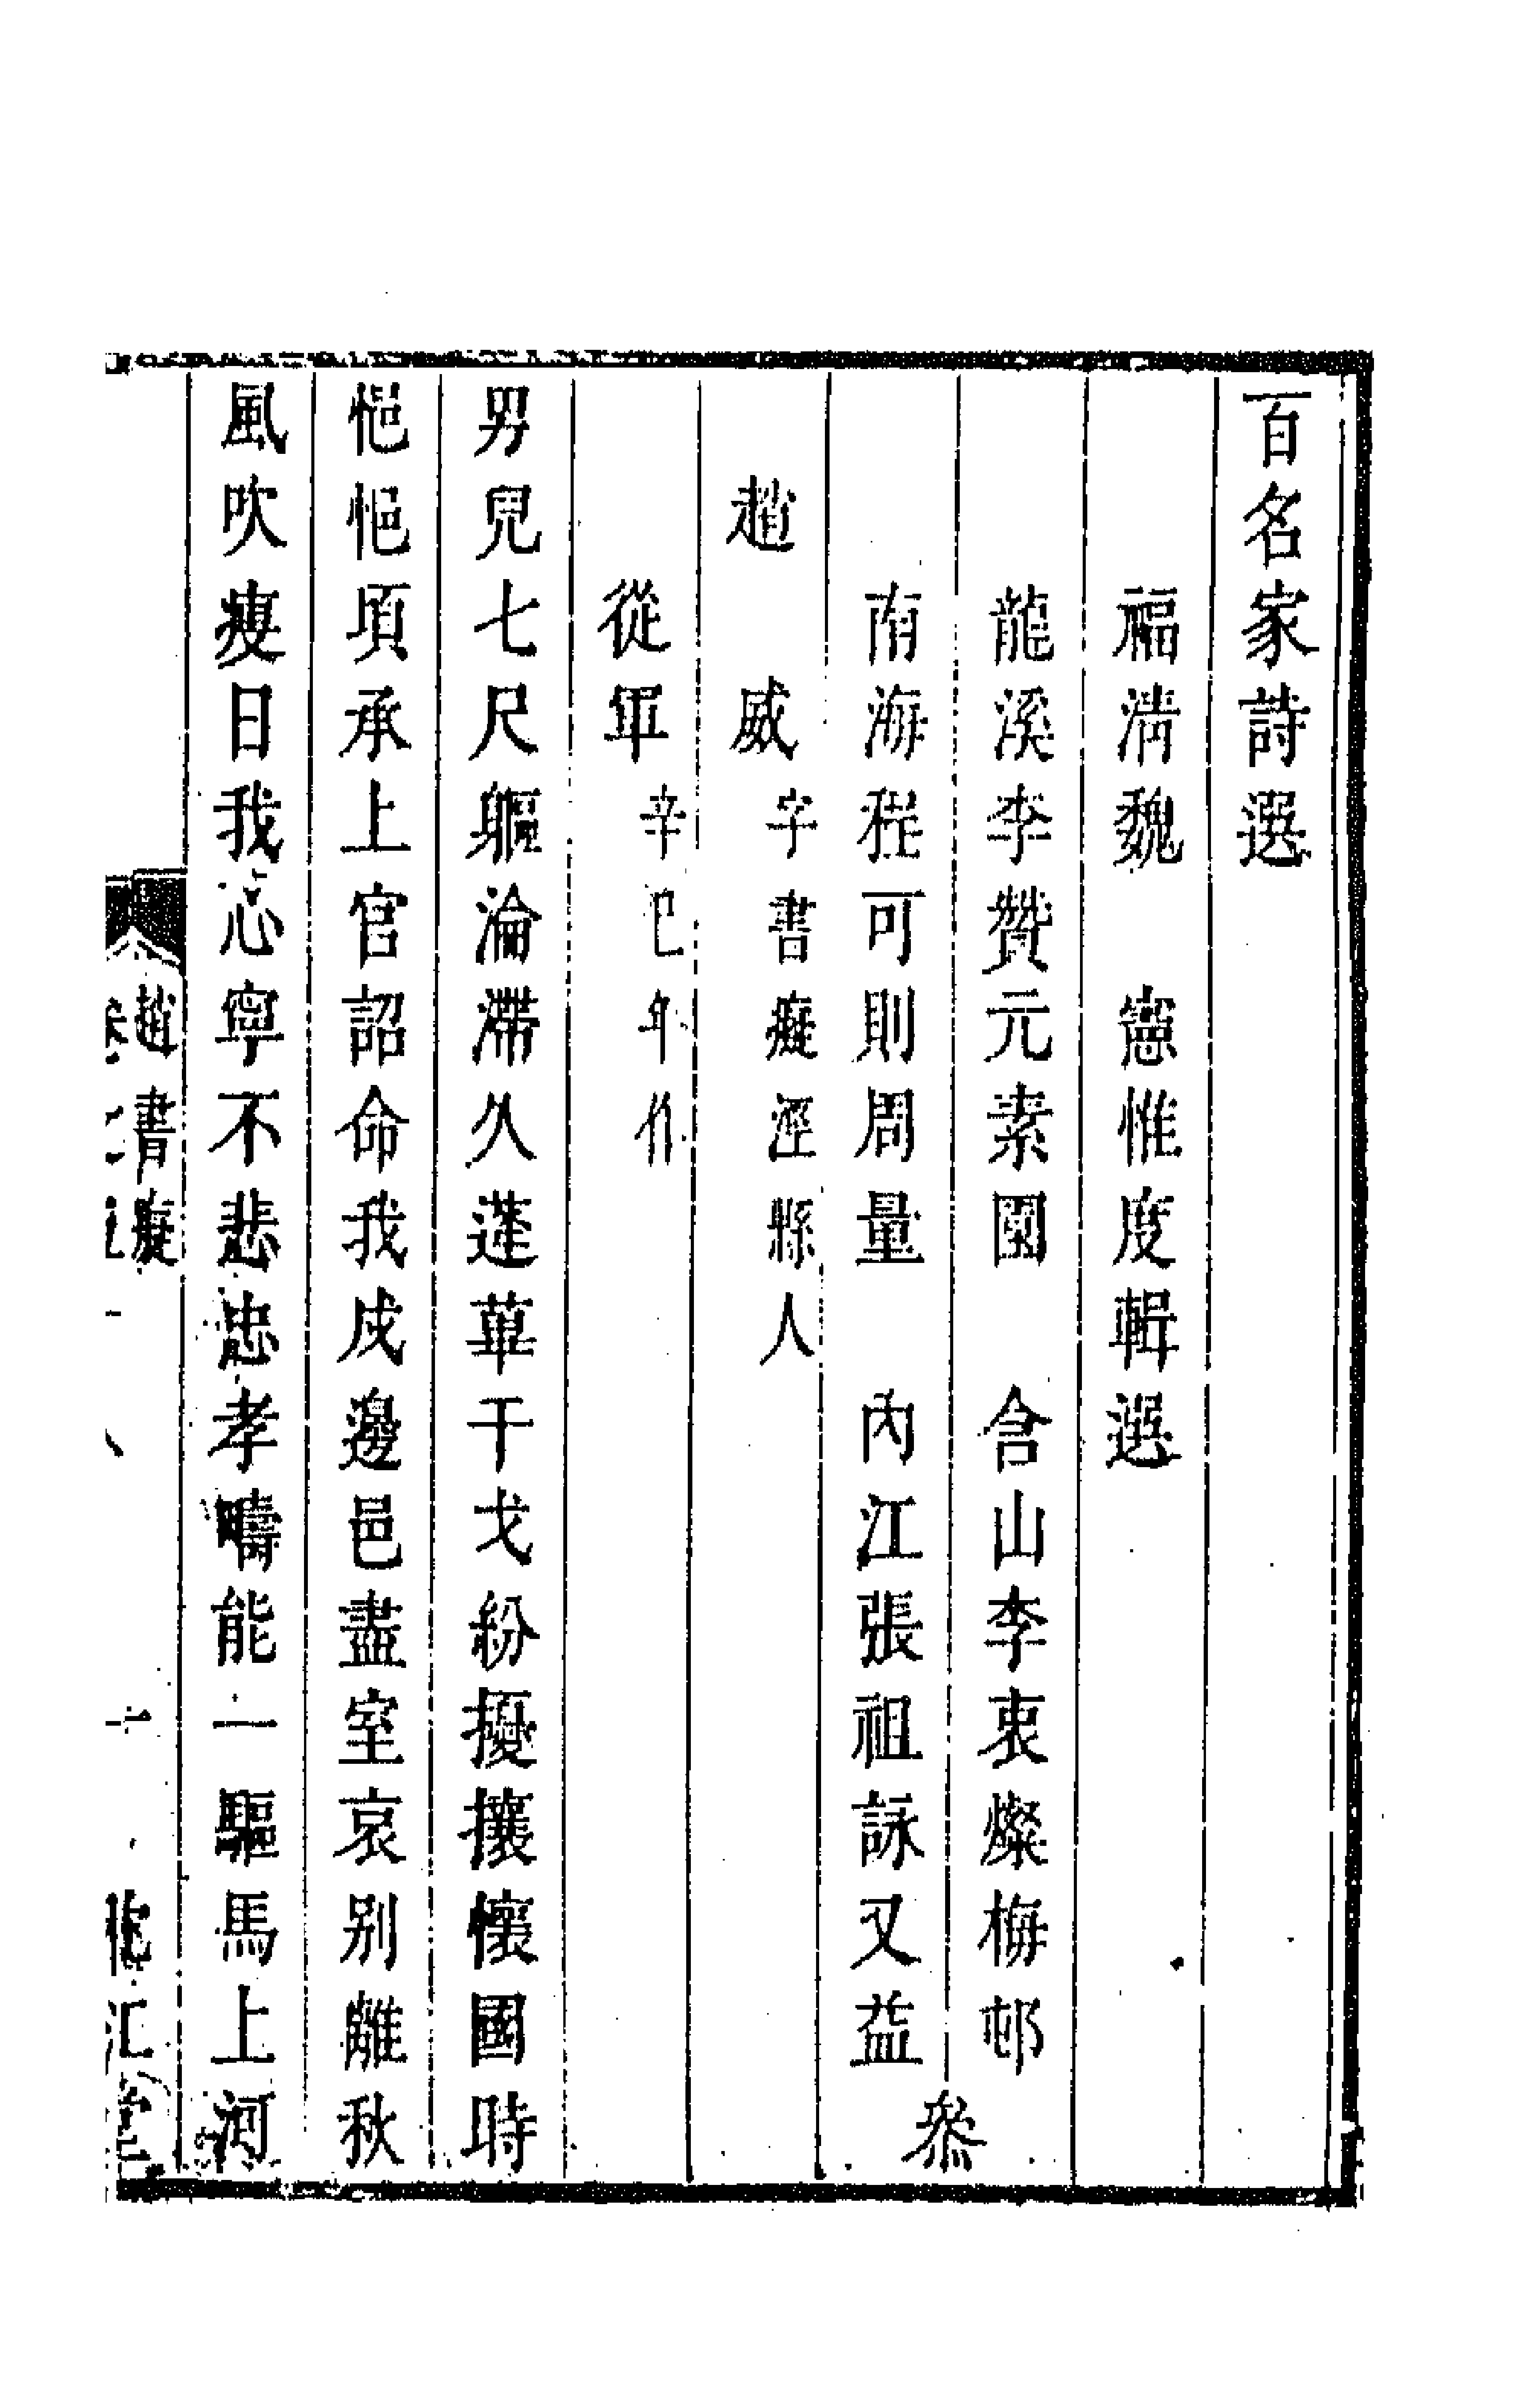 百名家詩選
福清魏　憲惟度輯選
龍溪李贊元素園　含山李衷燦梅邨
南海程可則周量　內江張祖詠又益
叅
趙　威字書癡涇縣人
從軍辛巳年作
男兒七尺軀淪滯久蓬蓽干戈紛擾攘懷國時
悒悒項承上官詔命我戍邊邑盡室哀别離秋
風吹瘦日我心寧不悲忠孝疇能一驅馬上河
趙書癡